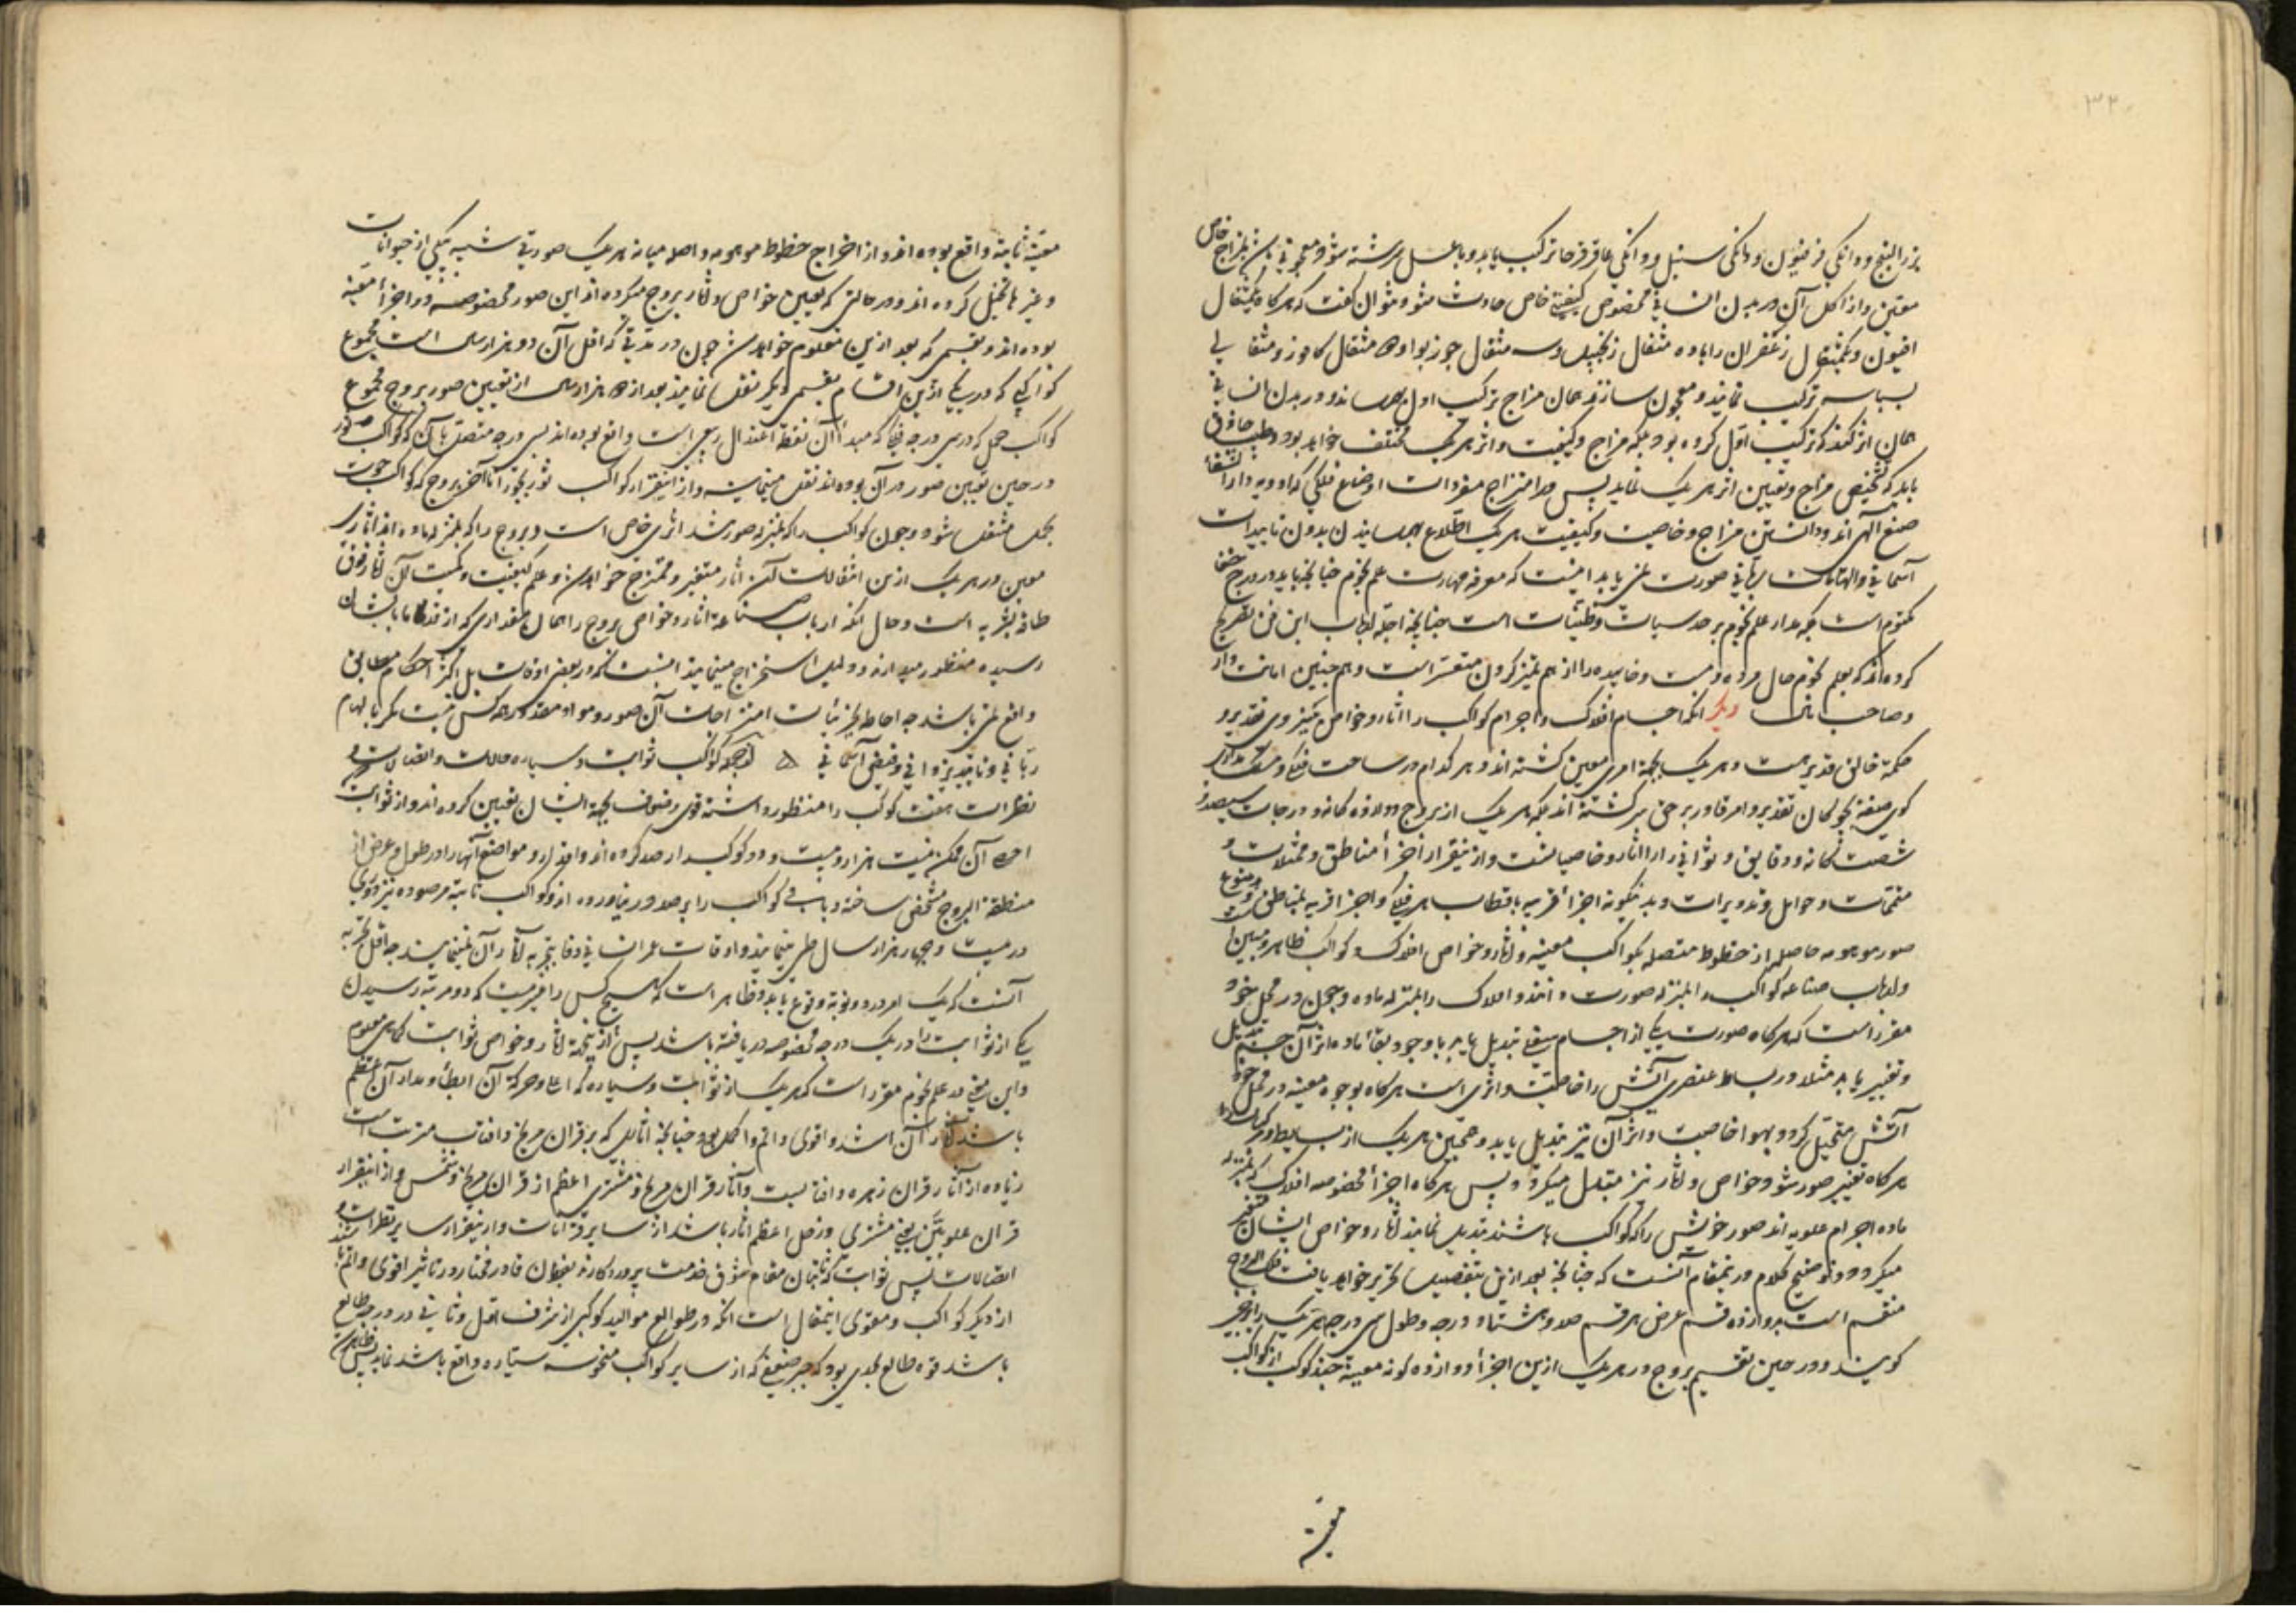 ۳۲
بزر البنج و دانکی فرفیون و دانکی سنبل و دانکی عاقرقرحا ترکیب یابد و با عسل سرشته شود معجونی بمزاج خاص
معین و از اکل آن در بدن انسانی مخصوص کیفیتی خاص حادث شود و نتوان کفت که هرکاه یکمثقال
افیون و یکمثقال زعفران را با ده مثقال زنجبیل و سه مثقال جوز بوا و ده مثقال کافور و مثقالی
بسباسه ترکیب نمایند و معجون سازند همان مزاج ترکیب اول بهم رساند و در بدن انسانی
همان اثر کند که ترکیب اول کرده بود بلکه مزاج و کیفیت و اثر هر یک مختلف خواهد بود و طبیب حاذق
باید که تشخیص مزاج و تعیین اثر هر یک نماید پس در امتزاج مفردات اوضاع فلکی که ادویه دار الشفاء
صنع الهی‌اند و دانستن مزاج و خاصیت و کیفیت هر یک اطلاع بهم رسانیدن بدون تاییدات
آسمانی و الهامات ربانی صورت نمی یابد اینست که معرفه مهارت علم نجوم چنانچه باید در درج خفا
مکتوم است چه مدار علم نجوم بر حدسیات و ظنیات است چنانچه اجله ارباب این فن تصریح
کرده‌اند که بعلم نجوم حال مرده و مست و خابیده را از هم تمیز کردن متعسر است و هم چنین امانت دار
و صاحب دیکر انکه اجسام افلاک و اجرام کواکب را اثار و خواص از روی تقدیر و
حکمة خالق قدیر هست و هر یک بجهة امری معین کشته‌اند و هر کدام در ساحت فلک
کوی صفة بچوکان تقدیر و امر قادر بر حق سرکشته‌اند بلکه هر یک از بروج دوازده کانه و درجات سیصد و
شصت کانه و دقایق و ثوانی را اثار و خاصیاتست و ازینقرار اجزأ مناطق و ممثلات و
متممات و حوامل و تدویرات و بدینکونه اجزأ قریبه باقطاب هر فلک و اجزأ قریبه بمناطق
صور موهومه حاصله از خطوط متصله بکواکب معینه و اثار و خواص افلاک و کواکب ظاهر و مبین است
و ارباب صناعه کواکب را بمنزله صورت دانند و افلاک را بمنزله ماده و چون در محل خود
مقرر است که هرکاه صورت یکی از اجسام سفلی تبدیل یابد با وجود بقأ ماده اثر آن جسم تبدیل
و تغییر یابد مثلا در بسایط عنصری آتش را خاصیت و اثری است هرکاه بوجوه معینه در محل خود
آتش مستحیل کردد بهوا خاصیت و اثر آن نیز تبدیل یابد و همچنین هر یک از بسایط و مرکبات
هرکاه تغییر صور شود خواص و اثار نیز متبدل میکردد و پس هرکاه اجزأ مخصوصه افلاک که بمنزله
ماده اجرام علویه‌اند صور خویش را که کواکب باشند تبدیل نمایند اثار و خواص ایشان متغیر
میکردد و توضیح کلام درینمقام آنست که چنانچه بعد ازین بتفصیل تحریر خواهد یافت فلک البروج
منقسم است بدوازده قسم عرض هر قسم صد و هشتاد درجه و طول سی درجه هر یک را برجی
کویند و در حین تقسیم بروج در هر یک ازین اجزأ دوازده کونه معینه چند کوکب از کواکب
معینه
معینه ثابته واقع بوده‌اند و از اخراج خطوط موهومه واصله میانه هر یک صورتی شبیه بیکی از حیوانات
و غیرها تخیل کرده‌اند و در حالتی که تعیین خواص و اثار بروج میکرده‌اند این صور مخصوصه در اجزأ معینه
بوده‌اند و بقسمی که بعد ازین معلوم خواهد شد چون در مدتی که اقل آن دو هزار سال است مجموع
کواکبی که در یکی ازین اقسام بقسمی دیکر نقل نمایند بعد از ده هزار سال از تعیین صور بروج مجموع
کواکب حمل که در سی درجه فلک که مبدأ آن نقطه اعتدال ربیعی است واقع بوده‌اند بسی درجه متصل بآن که کواکب ثور
در حین تعیین صور در آن بوده‌اند نقل مینمایند و ازینقرار کواکب ثور بجوزا تا آخر بروج که کواکب حوت
بحمل منتقل شود و چون کواکب را که بمنزله صور شد اثری خاص است و بروج را که بمنزله ماده‌اند اثاری
معین در هر یک ازین انتقالات آن اثار متغیر و ممتزج خواهد شد و علم کیفیت و کمیت آن اثار فوق
طاقة بشریه است و حال انکه ارباب صناعة اثار و خواص بروج را همان مقداری که از قدما بایشان
رسیده منظور میدارند و دلیل استخراج مینمایند اینست که در بعضی اوقات بل اکثر احکام مطابق
واقع نمی باشد چه احاطه بجزئیات امتزاجات آن صور و مواد مقدور هر کس نیست مکر بالهام
ربانی و تایید یزدانی و فیض آسمانی کواکب ثوابت و سیاره حالات و اتصالات و
نظرات هفت کوکب را منظور داشته قوی و ضعف بجهة ایشان تعیین کرده‌اند و از ثوابت
احصاء آن ممکن نیست هزار و بیست و دو کوکب را رصد کرده‌اند و اقدار و مواضع آنها را در طول و عرض از
منطقة البروج مشخص ساخته و باقی کواکب را برصد در نیاورده‌اند و کواکب ثابته مرصوده نیز دوری
در بیست و چهار هزار سال طی مینمایند و اوقات عمر انسانی وفا بتجربه اثار آن نمینماید چه اقل تجربه
آنست که یک امر در دو نوبة وقوع یابد و ظاهر است که هیچ کس را میسر نیست که دو مرتبه رسیدن
یکی از ثوابت را در یک درجه مخصوصه دریافته باشد پس ازینجهة اثار و خواص ثوابت کماهی معلوم
و این نیز در علم نجوم مقرر است که هر یک از ثوابت و سیاره که اعلی و حرکة آن ابطأ و مدار آن اعظم
باشد اثار آن اشد و اقوی و اتم و اکمل بود چنانچه اثاری که بر قران مریخ و افتاب مترتب است
زیاده از آثار قران زهره و افتابست و آثار قران مریخ و مشتری اعظم از قران مریخ و شمس و ازینقرار
قران علویین یعنی مشتری و زحل اعظم اثار باشد از سایر قرانات و ازینقرار سایر نظرات و
اتصالات پس ثوابت که ثابتان مقام شوق خدمت پروردکارند بفرمان قادر مختار در تاثیر اقوی و اتم باشند
از دیکر کواکب و مقوی اینمقال است انکه در طوالع موالید کوکبی از شرف اول و ثانی در درجه طالع
باشد قوة طالع بحدی بود که جبر ضعفی که از سایر کواکب منحوسه سیاره واقع باشد نماید پس ظاهر